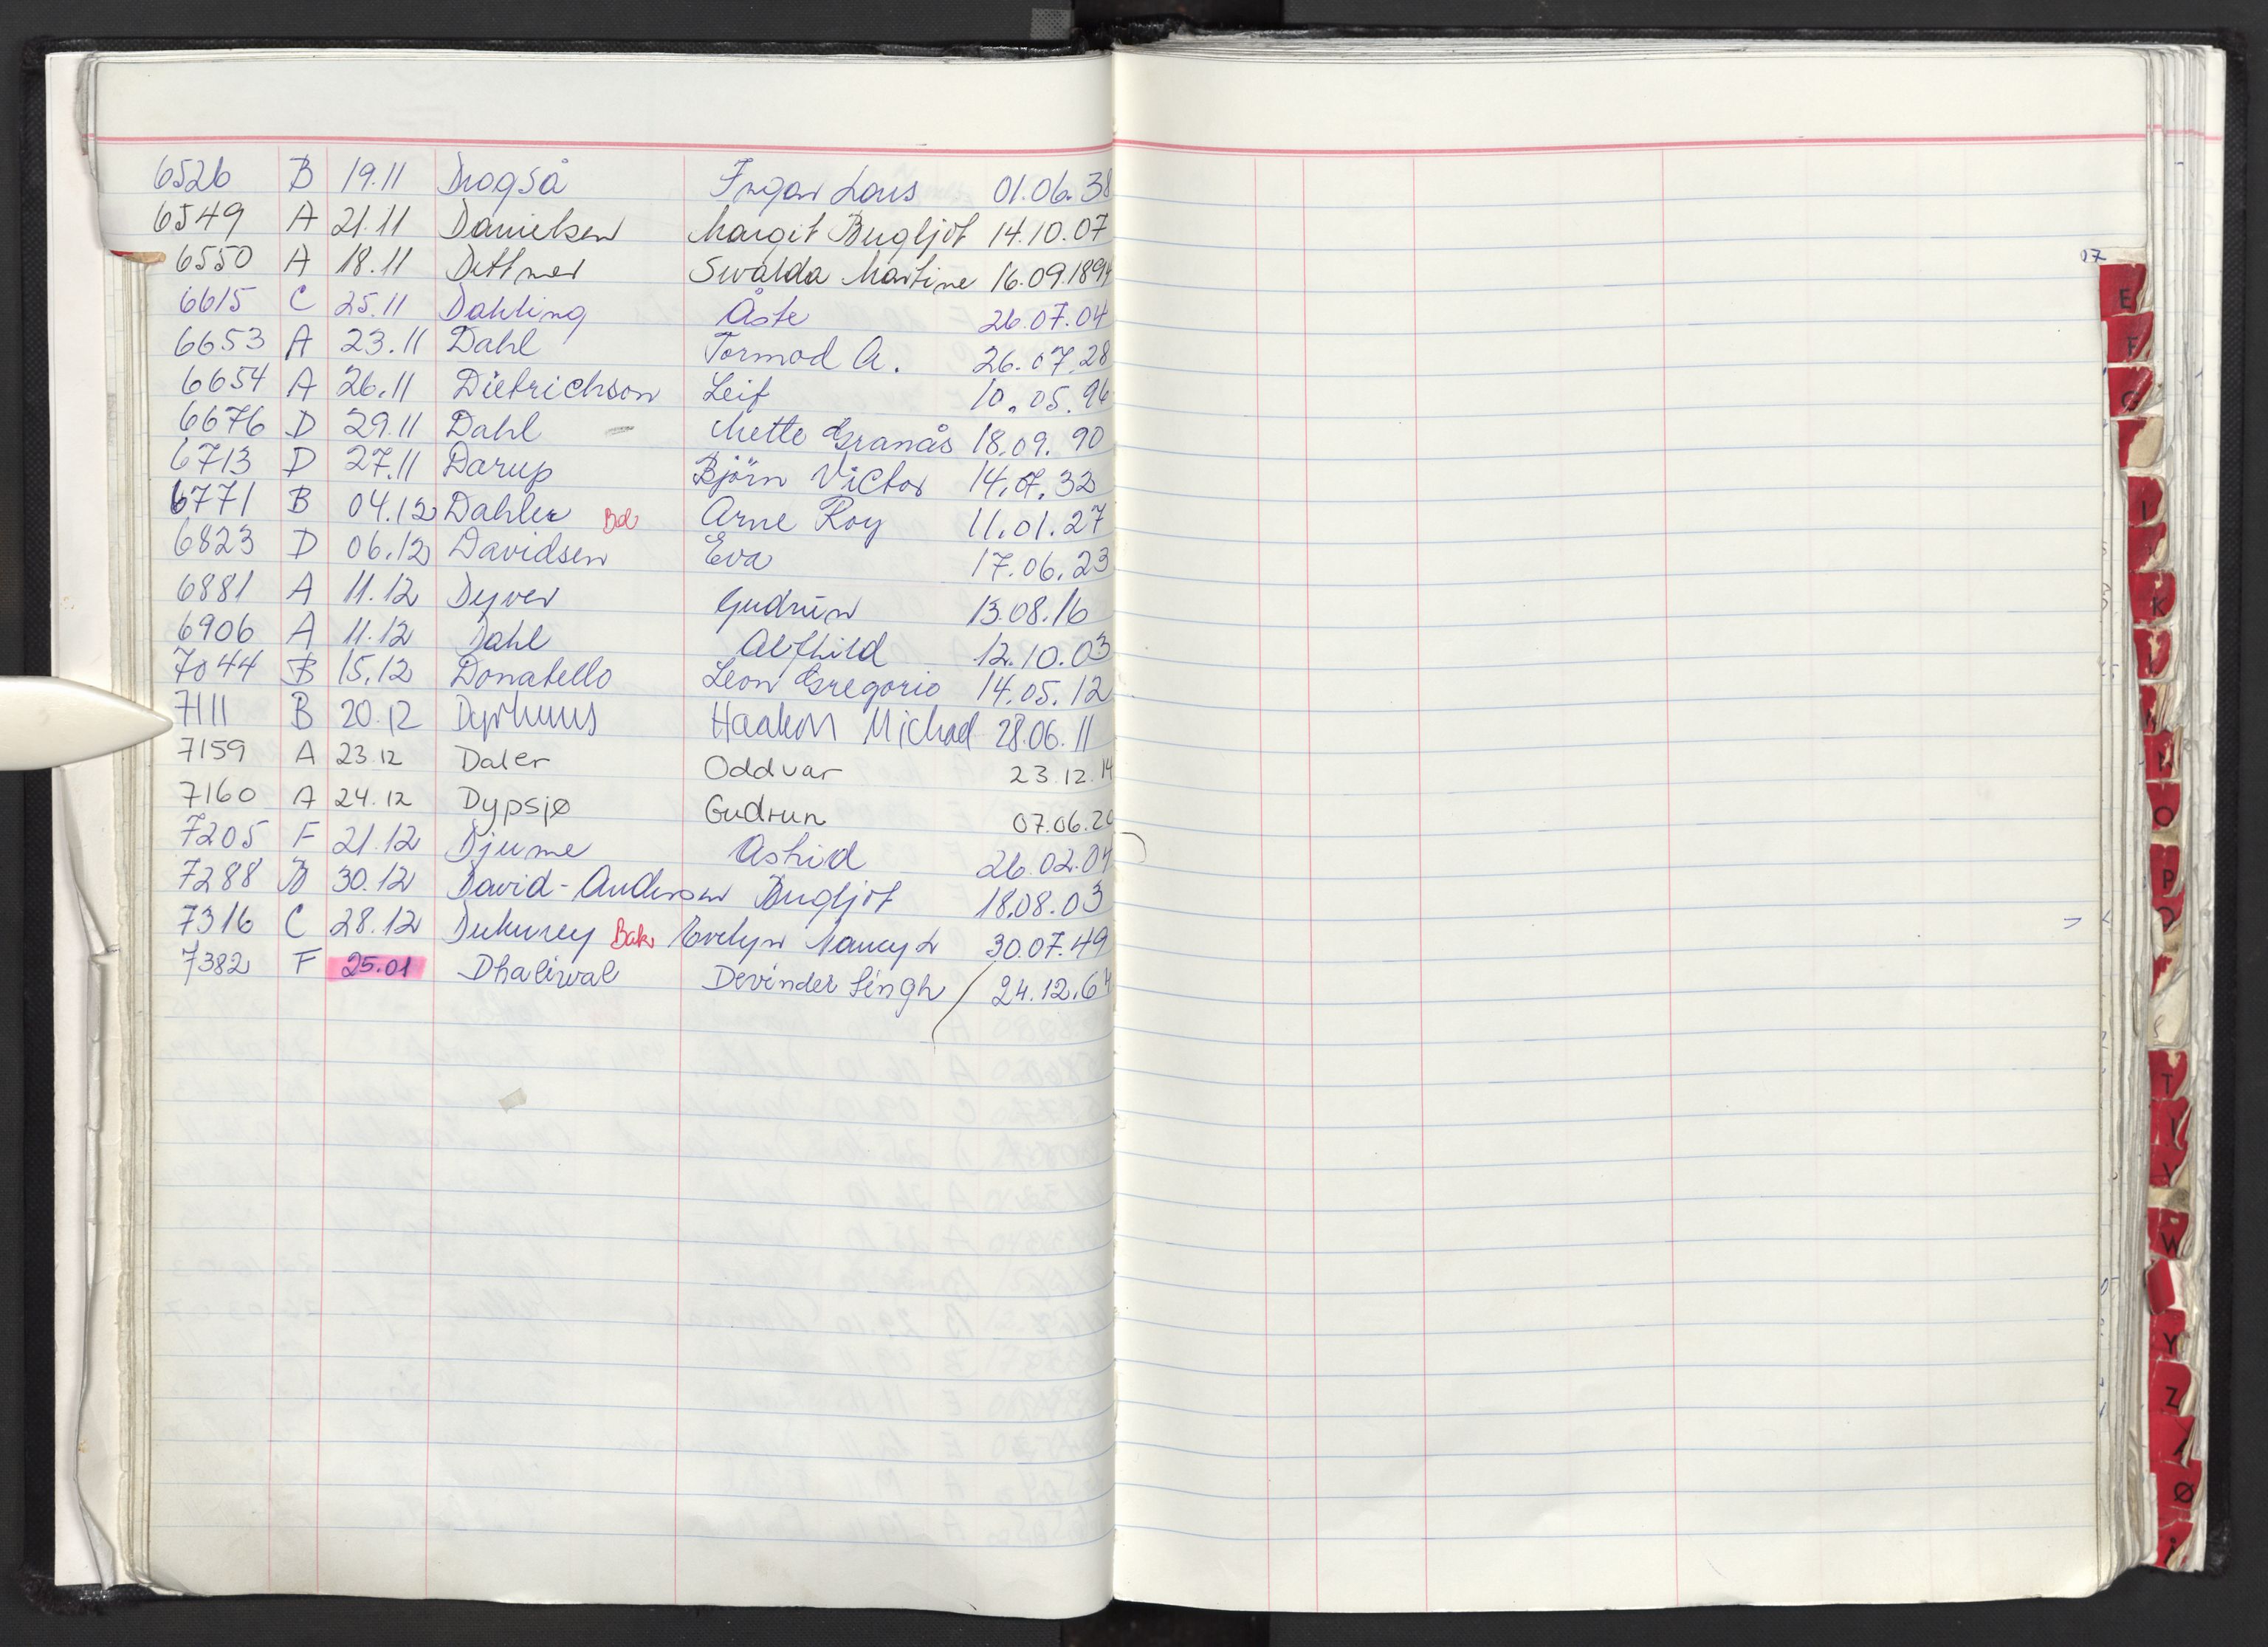 6526 B 19.11 Drogså Ingar Lars 01.06.38
6549 A 21.11 Danielsen Margit Bergljot 14.10.07
6550 A 18.11 Dittmer Svalda Martine 16.09.1894
6615 C 25.11 Dahling Åste 26.07.04
6653 A 23.11 Dahl Tormod A. 26.07.28
6654 A 26.11 Dietrichson Leif 10.05.96
6676 D 29.11 Dahl Mette Granås 18.09.90
6713 D 27.11 Darup Björn Victor 14.07.32
6771 B 04.12 Dahler Arne Roy 11.01.27
6823 D 06.12 Davidsen Eva 17.06.23
6881 A 11.12 Dyver Gudrun 13.08.16
6906 A 11.12 Dahl Alfhild 12.10.03
7044 B 15.12 Donatello Leon Gregorio 14.05.12
7111 B 20.12 Dyrhuus Haakon Michael 28.06.11
7159 A 23.12 Daler Oddvar 23.12.14
7160 A 24.12 Dypsjø Gudrun 07.06.20
7205 F 21.12 Djume Astrid 26.02.04
7288 B 30.12 David-Andersen Bergljot 18.08.03
7316 C 28.12 Bak Evelyn Nancy L 30.07.49
7382 F 25.01 Dhaliwal Devinder Singh 24.12.64
07
E
F
G
I
K
N
O
P
T
V
W
Y
Z
Ø